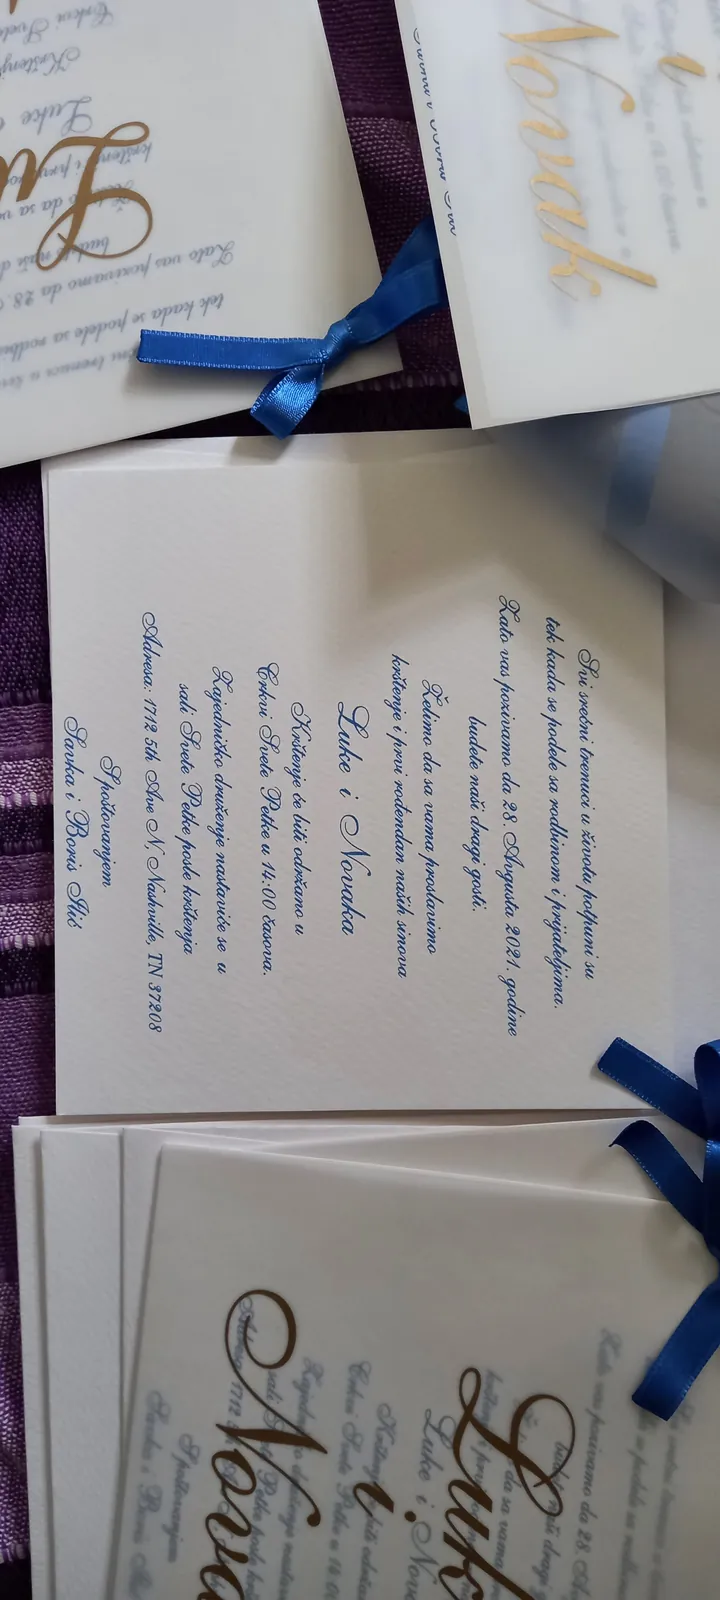 Svi srećni trenuci u životu potpuni su
tek kada se podele sa rodbinom i prijateljima.
Zato vas pozivamo da 28. Avgusta 2021. godine
budete naši dragi gosti.
Želimo da sa vama proslavimo
krštenje i prvi rođendan naših sinova
Luke i Novaka
Krštenje će biti održano u
Crkvi Svete Petke u 14:00 časova.
Zajedničko druženje nastaviće se u
sali Svete Petke posle krštenja
Adresa: 1712 5th Ave N, Nashville, TN 37208
Spoštovanjem
Savka i Boris Ilić
Zato vas pozivamo da 28.
tek kada se podele sa rodbin
Luke
i
Novak
Luk
i
Nova
Zato vas pozivamo da 28 A
Luke i Nova
Spoštovanjem